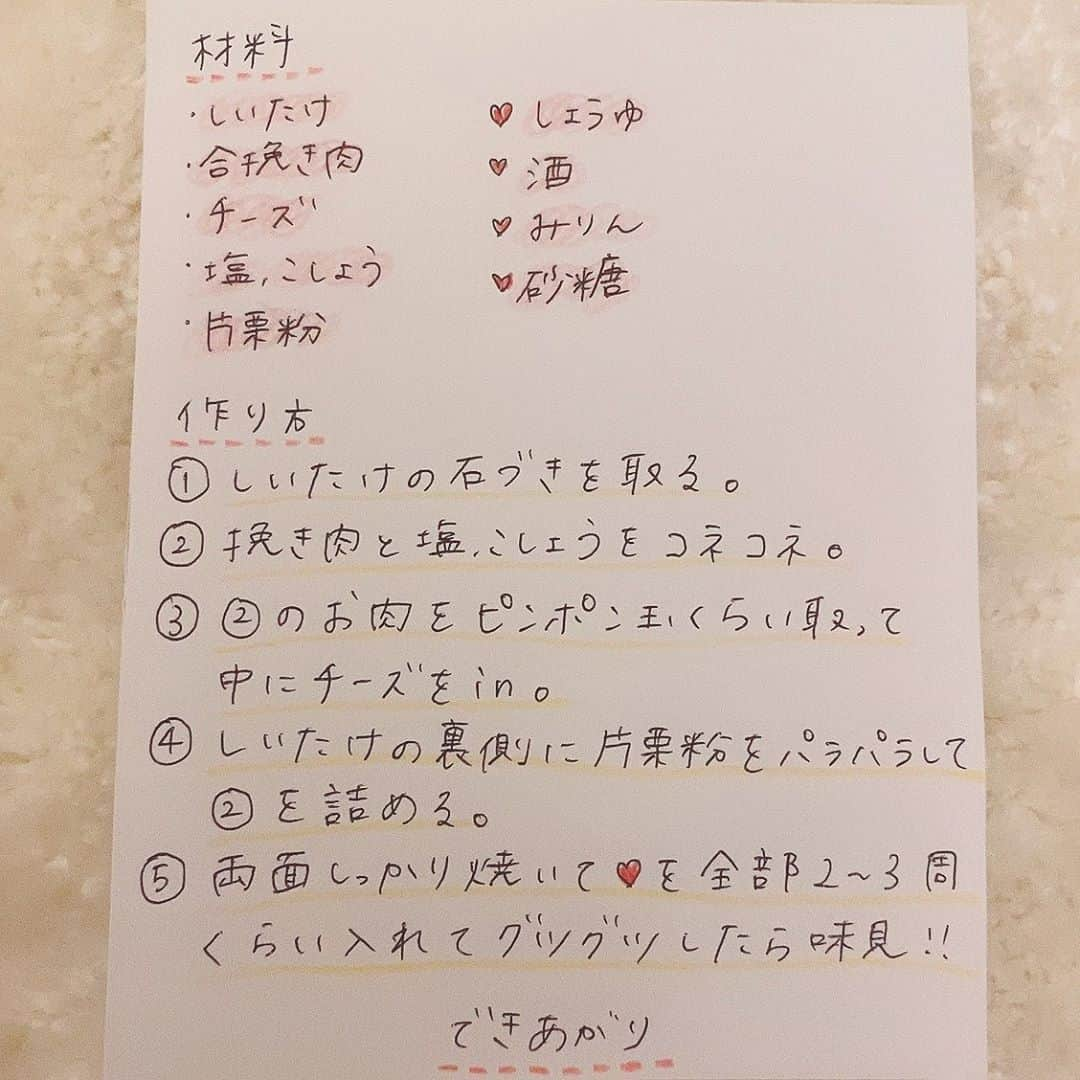 材料
・しいたけ
・合挽き肉
・チーズ
・塩、こしょう
・片栗粉
♥しょうゆ
♥酒
♥みりん
♥砂糖
作り方
①しいたけの石づきを取る。
②挽き肉と塩、こしょうをコネコネ。
③②のお肉をピンポン玉くらい取って
中にチーズをin。
④しいたけの裏側に片栗粉をパラパラして
②を詰める。
⑤両面しっかり焼いて♥を全部2〜3周
くらい入れてグツグツしたら味見!!
できあがり